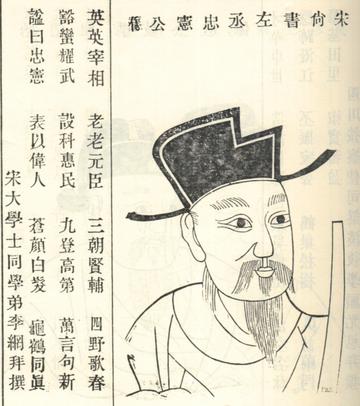 宋尙書左丞忠憲公像
英英宰相 老老元臣 三朝賢輔 四野歌春
豁蠻耀武 設科惠民 九登高第 萬言句新
謚曰忠憲 表以偉人 蒼顏白髮 龜鶴同眞
宋大學士同學弟李綱拜撰